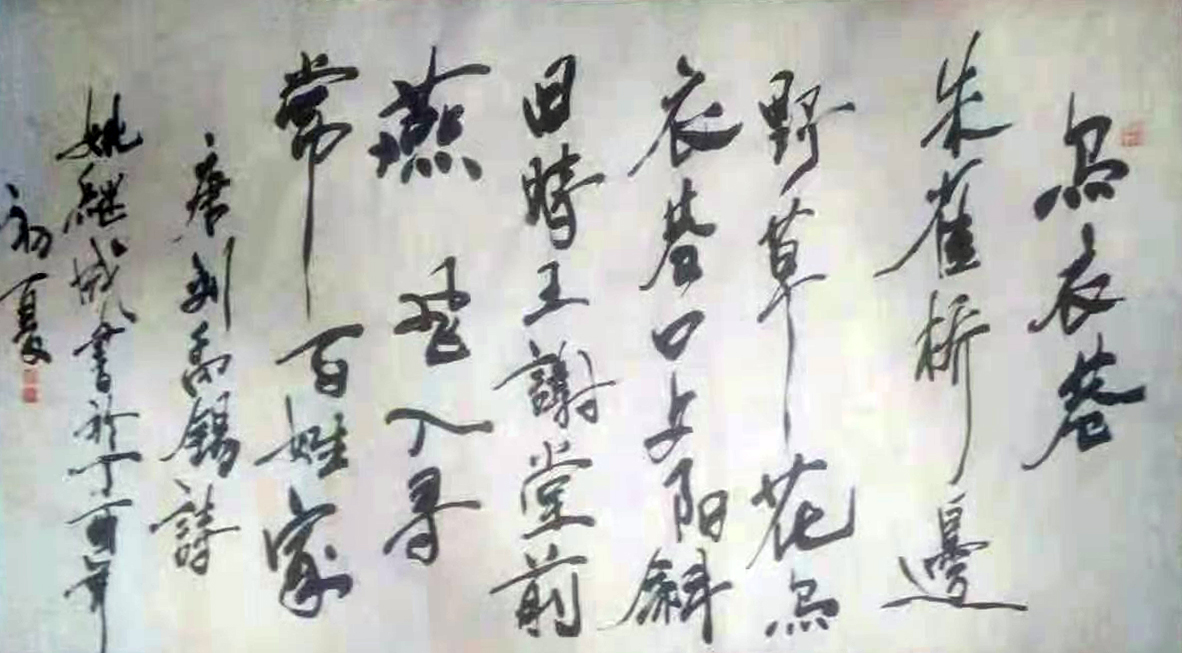 烏衣巷
朱雀桥邊
野草花烏
衣巷口夕阳斜
旧時王謝堂前
燕飛入寻
常百姓家
唐刘禹錫詩
姚継成書於丁酉年
初夏